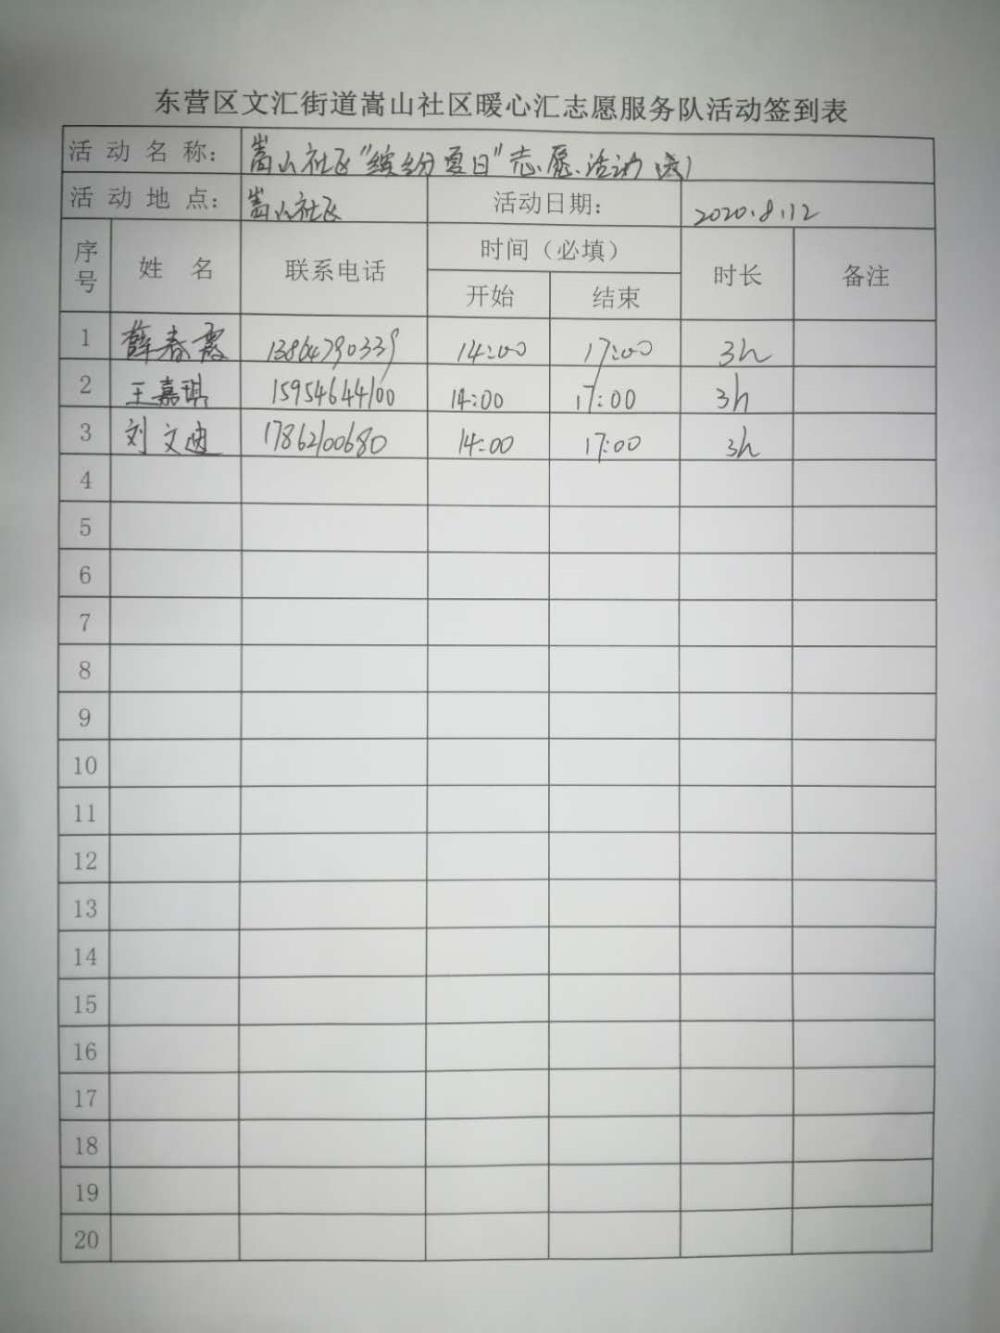 东营区文汇街道嵩山社区暖心汇志愿服务队活动签到表
活动名称： 嵩山社区“缤纷夏日”志愿活动
活动地点： 嵩山社区 活动日期： 2020.8.12
序号 姓名 联系电话 时间（必填） 时长 备注
开始 结束
1 薛春霞 13864790339 14:00 17:00 3h
2 王嘉琪 15954644100 14:00 17:00 3h
3 刘文迪 17862100680 14:00 17:00 3h
4
5
6
7
8
9
10
11
12
13
14
15
16
17
18
19
20